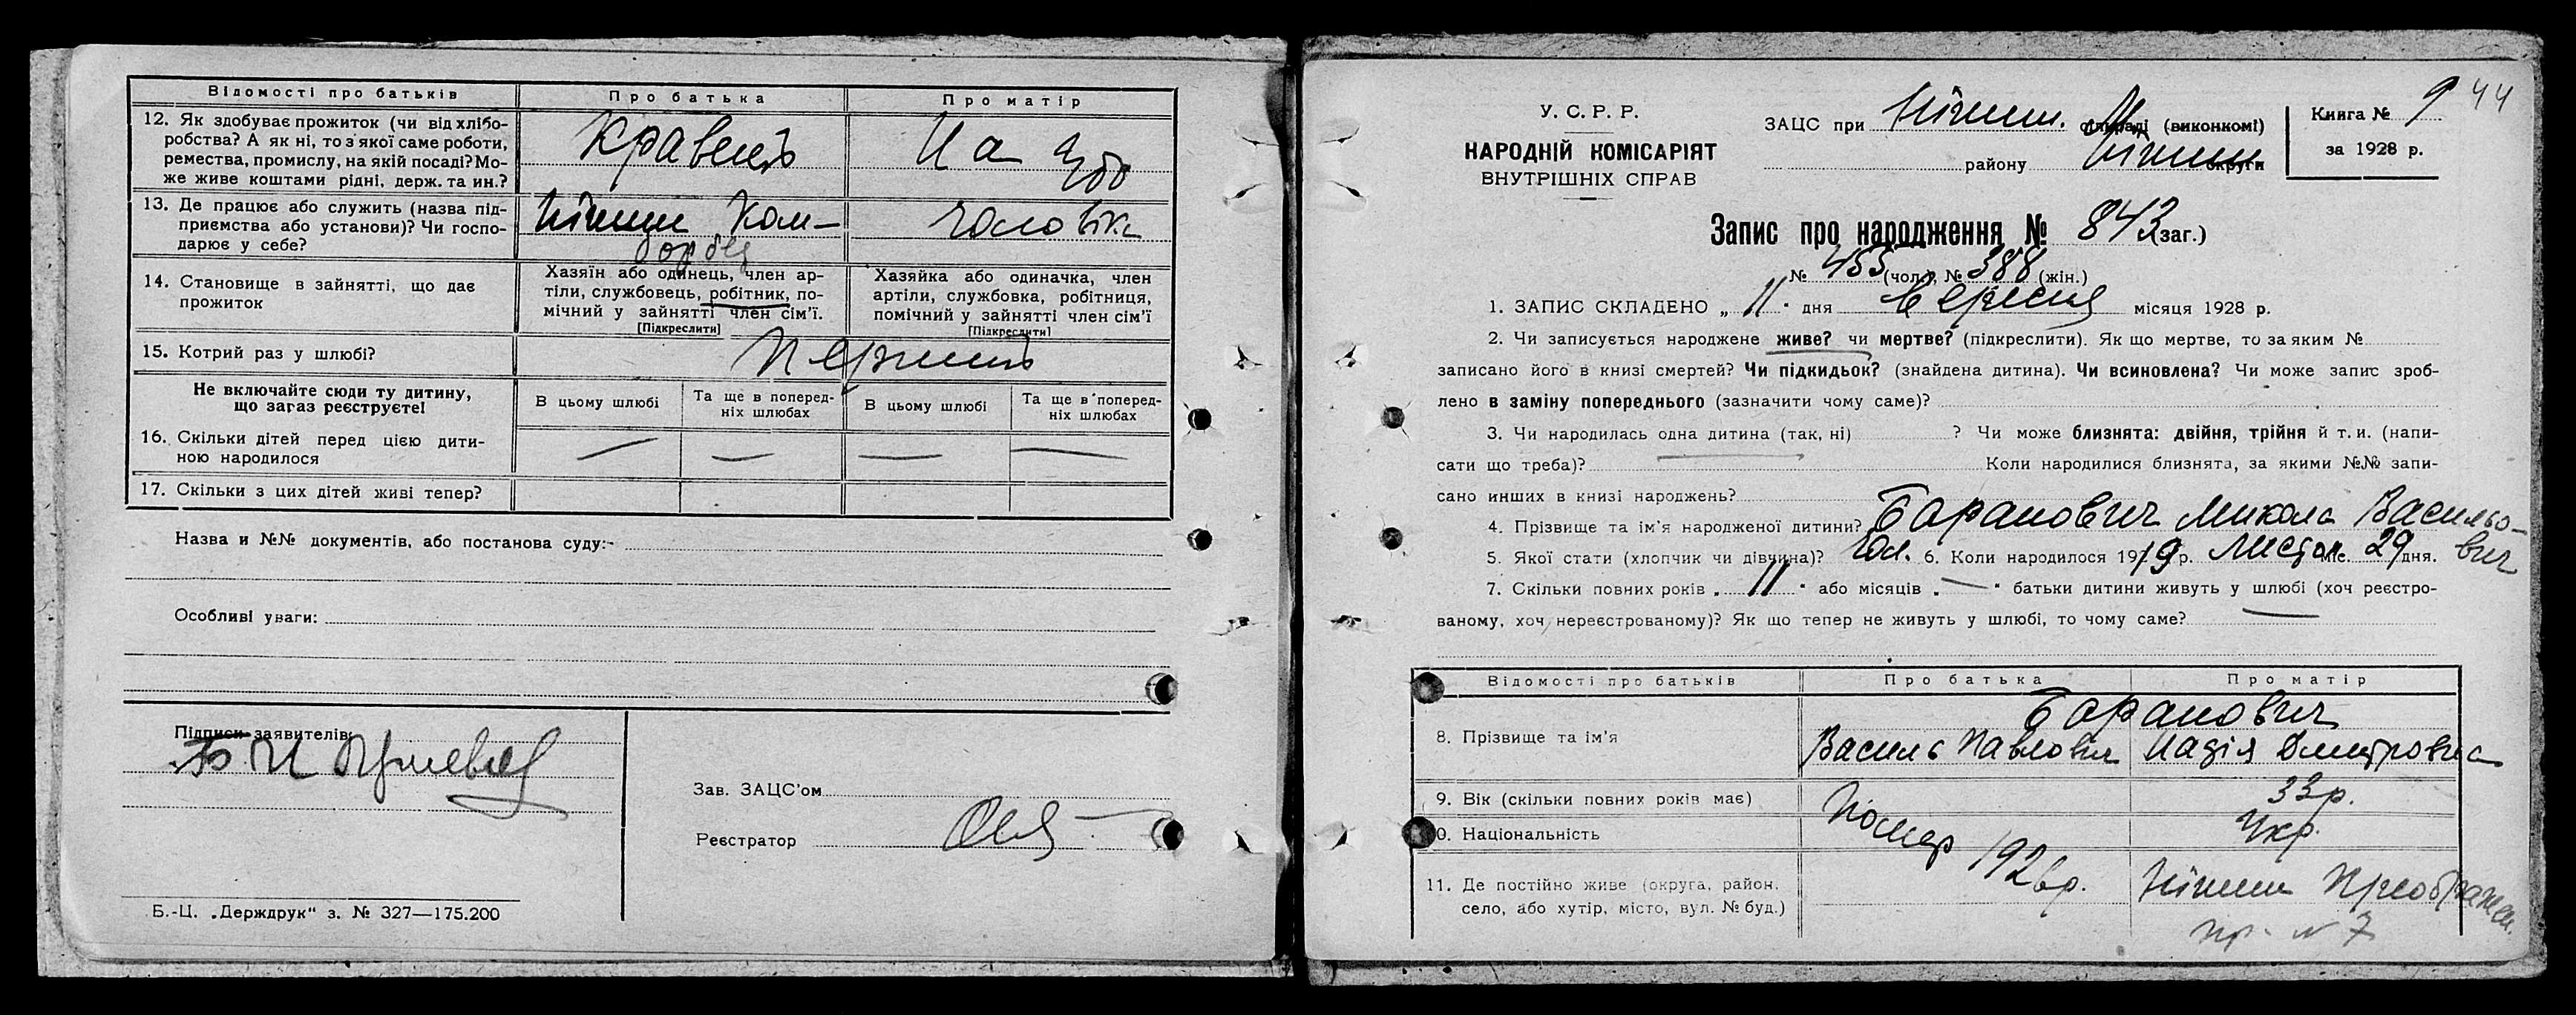 Відомості про батьків
Про батька
Про матір
12. Як здобуває прожиток (чи від хлібо-
робства? А як ні, то з якої саме роботи,
ремества, промислу, на якій посаді? Мо-
же живе коштами рідні, держ. та ин.?
Кравець
На
13. Де працює або служить (назва під-
приємства або установи)? Чи госпо-
дарює у себе?
Ніжин Ком-
чоловіка
14. Становище в зайнятті, що дає
прожиток
Хазяїн або одинець, член ар-
тіли, службовець, робітник, по-
мічний у зайнятті член сім'ї.
[Підкреслити]
Хазяйка або одиначка, член
артіли, службовка, робітниця,
помічний у зайнятті член сім'ї
[Підкреслити]
15. Котрий раз у шлюбі?
Перший
Не включайте сюди ту дитину,
що загаз реєструєте!
В цьому шлюбі
Та ще в поперед-
ніх шлюбах
В цьому шлюбі
Та ще в поперед-
ніх шлюбах
16. Скільки дітей перед цією дити-
ною народилося
— — — —
17. Скільки з цих дітей живі тепер?
Назва и №№ документів, або постанова суду:-
Особливі уваги:
Підписи заявителів:
Зав. ЗАЦС'ом
Реєстратор
Б.-Ц. „Держдрук" з. № 327—175.200
У. С. Р. Р.
НАРОДНІЙ КОМІСАРІЯТ
ВНУТРІШНІХ СПРАВ
ЗАЦС при Ніжин. М. сільраді (виконкомі)
району Ніжин округи
Книга № 9
за 1928 р.
44
Запис про народження № 843 (заг.)
№ 455 (чол.), № 388 (жін.)
1. ЗАПИС СКЛАДЕНО „ 11 " дня вересня місяця 1928 р.
2. Чи записується народжене живе? чи мертве? (підкреслити). Як що мертве, то за яким №
записано його в книзі смертей? Чи підкидьок? (знайдена дитина). Чи всиновлена? Чи може запис зроб-
лено в заміну попереднього (зазначити чому саме)?
3. Чи народилась одна дитина (так, ні) ? Чи може близнята: двійня, трійня й т. и. (напи-
сати що треба)? Коли народилися близнята, за якими №№ запи-
сано инших в книзі народжень?
4. Прізвище та ім'я народженої дитини? Баранович Микола Васильо-
вич
5. Якої стати (хлопчик чи дівчина)? Чол. 6. Коли народилося 1919 р. Листоп. міс. 29 дня.
7. Скільки повних років „ 11 " або місяців „ — " батьки дитини живуть у шлюбі (хоч реєстро-
ваному, хоч нереєстрованому)? Як що тепер не живуть у шлюбі, то чому саме? —
Відомості про батьків
Про батька
Про матір
8. Прізвище та ім'я
Баранович
Василь Павлович
Надія Дмитровна
9. Вік (скільки повних років має)
Помер 1926 р.
33 р.
10. Національність
Укр.
11. Де постійно живе (округа, район,
село, або хутір, місто, вул. № буд.)
Ніжин Преображен.
пр. № 7